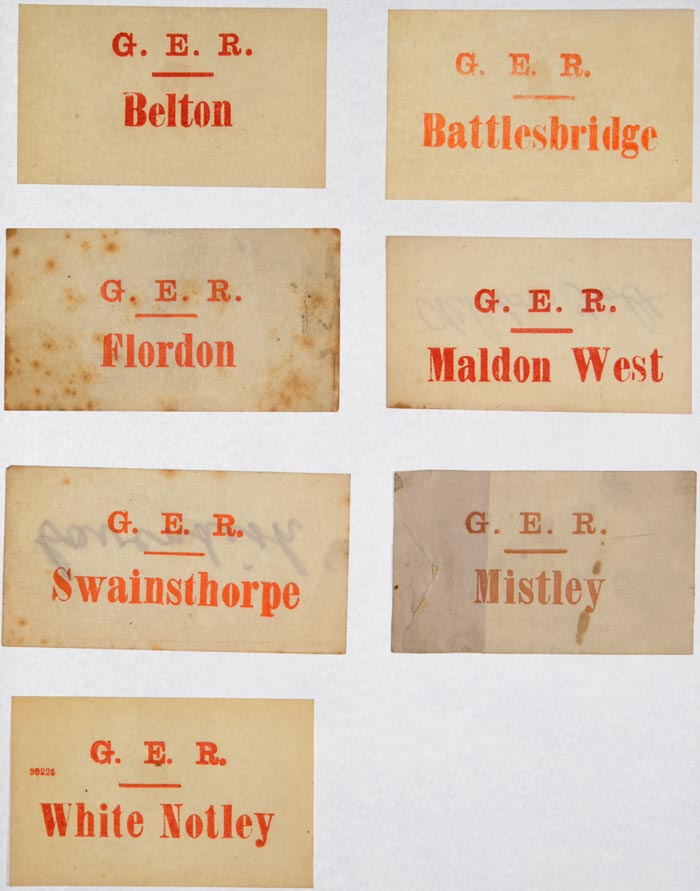 G. E. R.
Belton
G. E. R.
Battlesbridge
G. E. R.
Flordon
G. E. R.
Maldon West
G. E. R.
Swainsthorpe
G. E. R.
Mistley
G. E. R.
White Notley